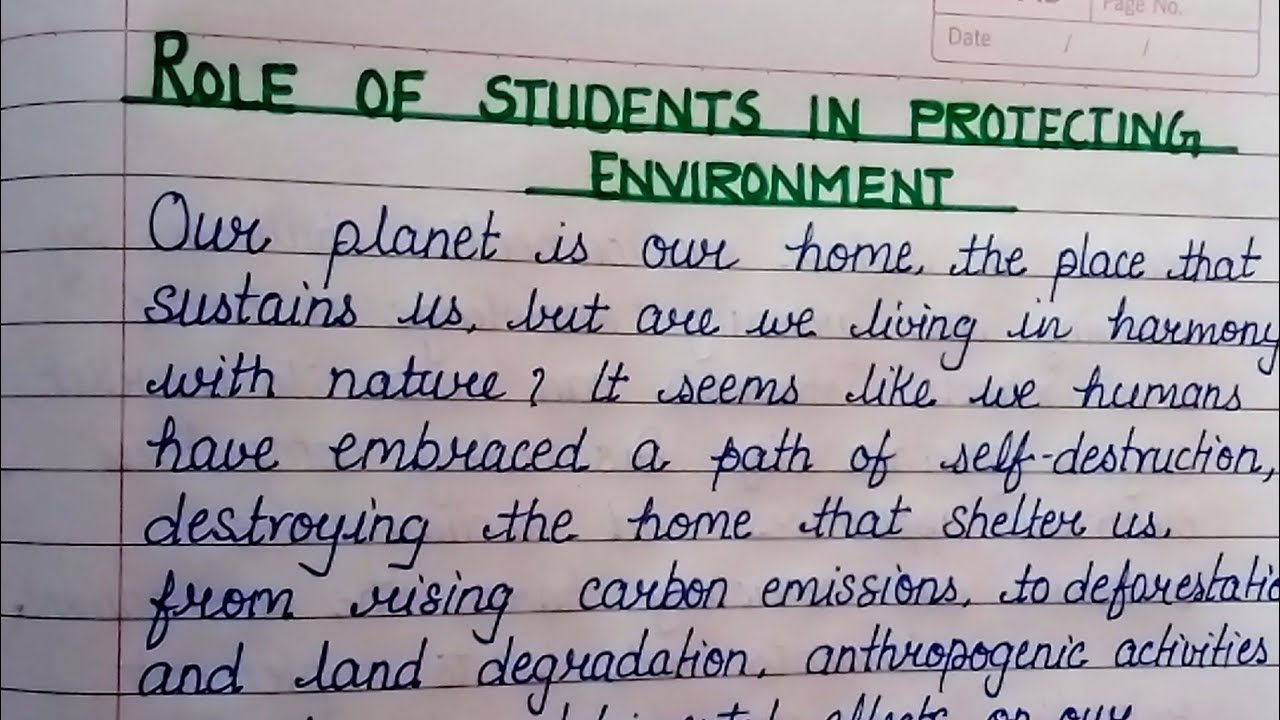 Page No.
Date / /
ROLE OF STUDENTS IN PROTECTING
ENVIRONMENT
Our planet is our home, the place that
sustains us, but are we living in harmony
with nature? It seems like we humans
have embraced a path of self-destruction,
destroying the home that shelter us.
from rising carbon emissions, to deforestatio
and land degradation, anthropogenic activities
effects on our